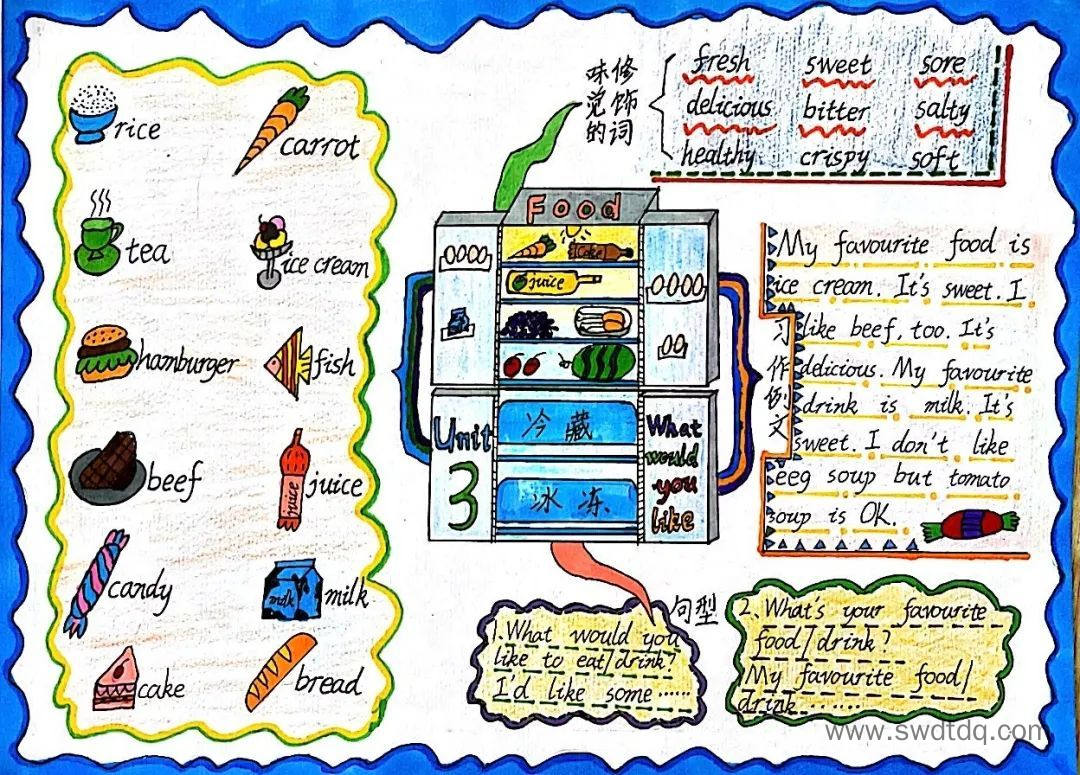 rice
carrot
tea
ice cream
hamburger
fish
beef
juice
juice
candy
milk
milk
cake
bread
味觉的
修饰词
fresh sweet sore
delicious bitter salty
healthy crispy soft
Food
Cake
juice
冷藏
冰冻
Unit
3
What
would
you
like
习作例文
My favourite food is
ice cream. It's sweet. I
like beef, too. It's
delicious. My favourite
drink is milk. It's
sweet. I don't like
eeg soup but tomato
soup is OK.
句型
1. What would you
like to eat/drink?
I'd like some ......
2. What's your favourite
food/drink?
My favourite food/
drink ......
www.swdtdq.com